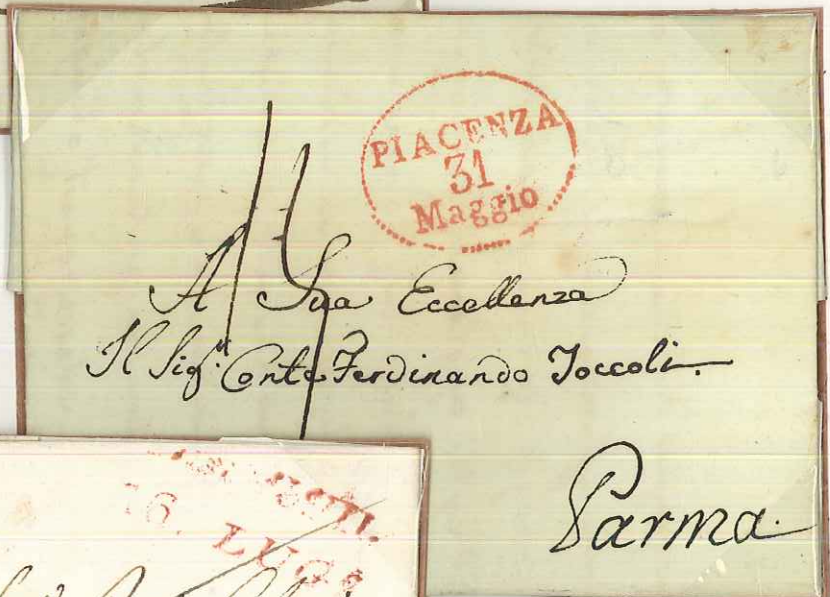 PIACENZA
31
Maggio
A Sua Eccellenza
Il Sig.r Conte Ferdinando Toccoli.
Parma.
16
LUG